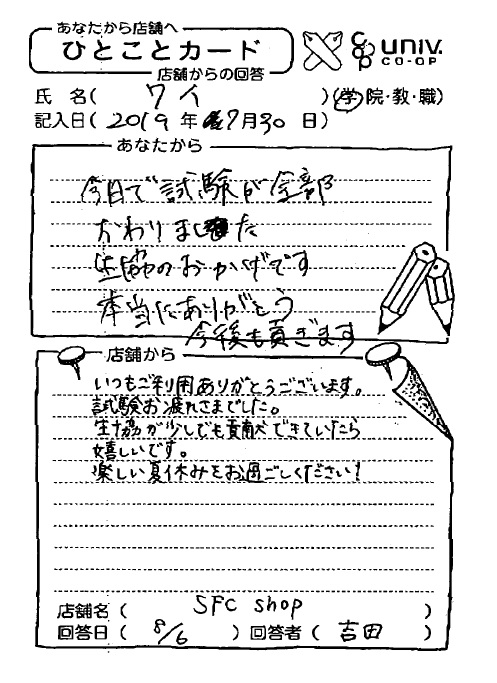 あなたから店舗へ
ひとことカード
店舗からの回答
univ.
CO-OP
氏 名( ワイ )(学院・教・職)
記入日( 2019 年 7月30 日)
あなたから
今日で試験が全部
おわりました
生協のおかげです
本当にありがとう
今後も貢ぎます
店舗から
いつもご利用ありがとうございます。
試験お疲れさまでした。
生協が少しでも貢献できていたら
嬉しいです。
楽しい夏休みをお過ごしください!
店舗名( SFC shop )
回答日( 8/6 )回答者( 吉田 )